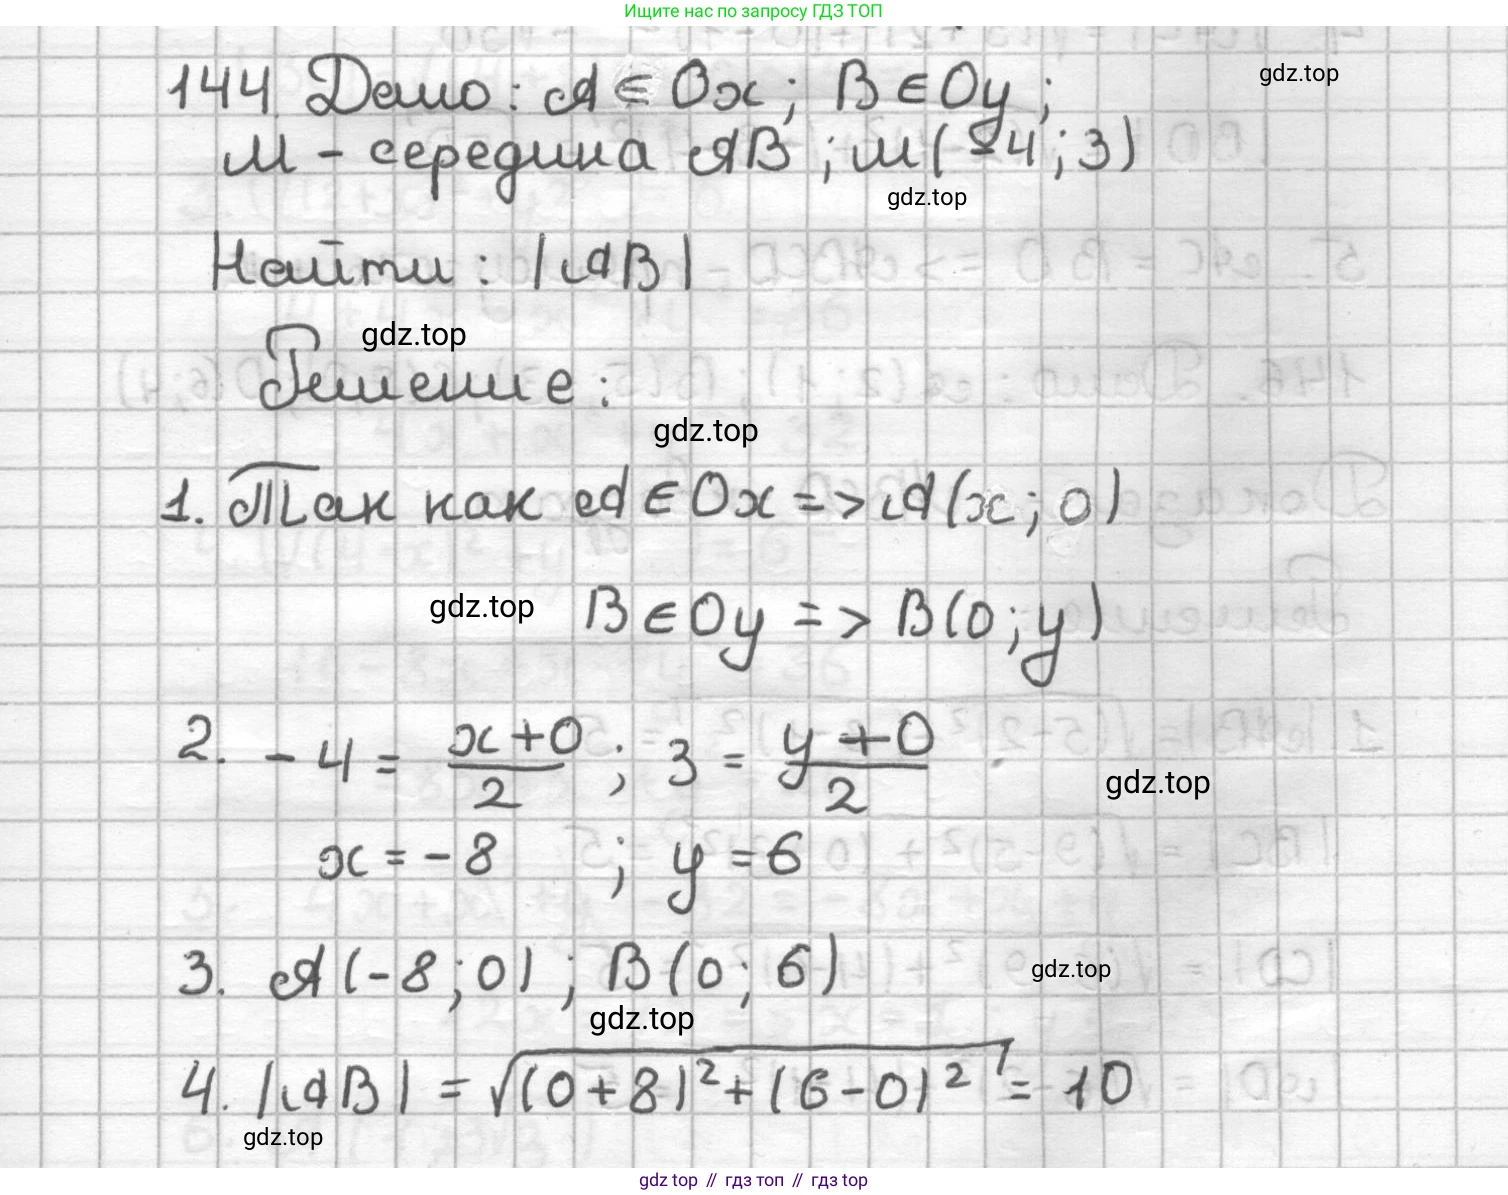 Ищите нас по запросу ГДЗ ТОП
144. Дано: A ∈ Ox; B ∈ Oy;
gdz.top
M - середина AB; M(-4; 3)
gdz.top
Найти: |AB|
gdz.top
Решение:
gdz.top
1. Так как A ∈ Ox => A(x; 0)
gdz.top
B ∈ Oy => B(0; y)
2. -4 = (x+0)/2 ; 3 = (y+0)/2
gdz.top
x = -8 ; y = 6
3. A(-8; 0) ; B(0; 6)
gdz.top
gdz.top
4. |AB| = √((0+8)²+(6-0)²) = 10
gdz.top
gdz top // гдз топ // gdz.top